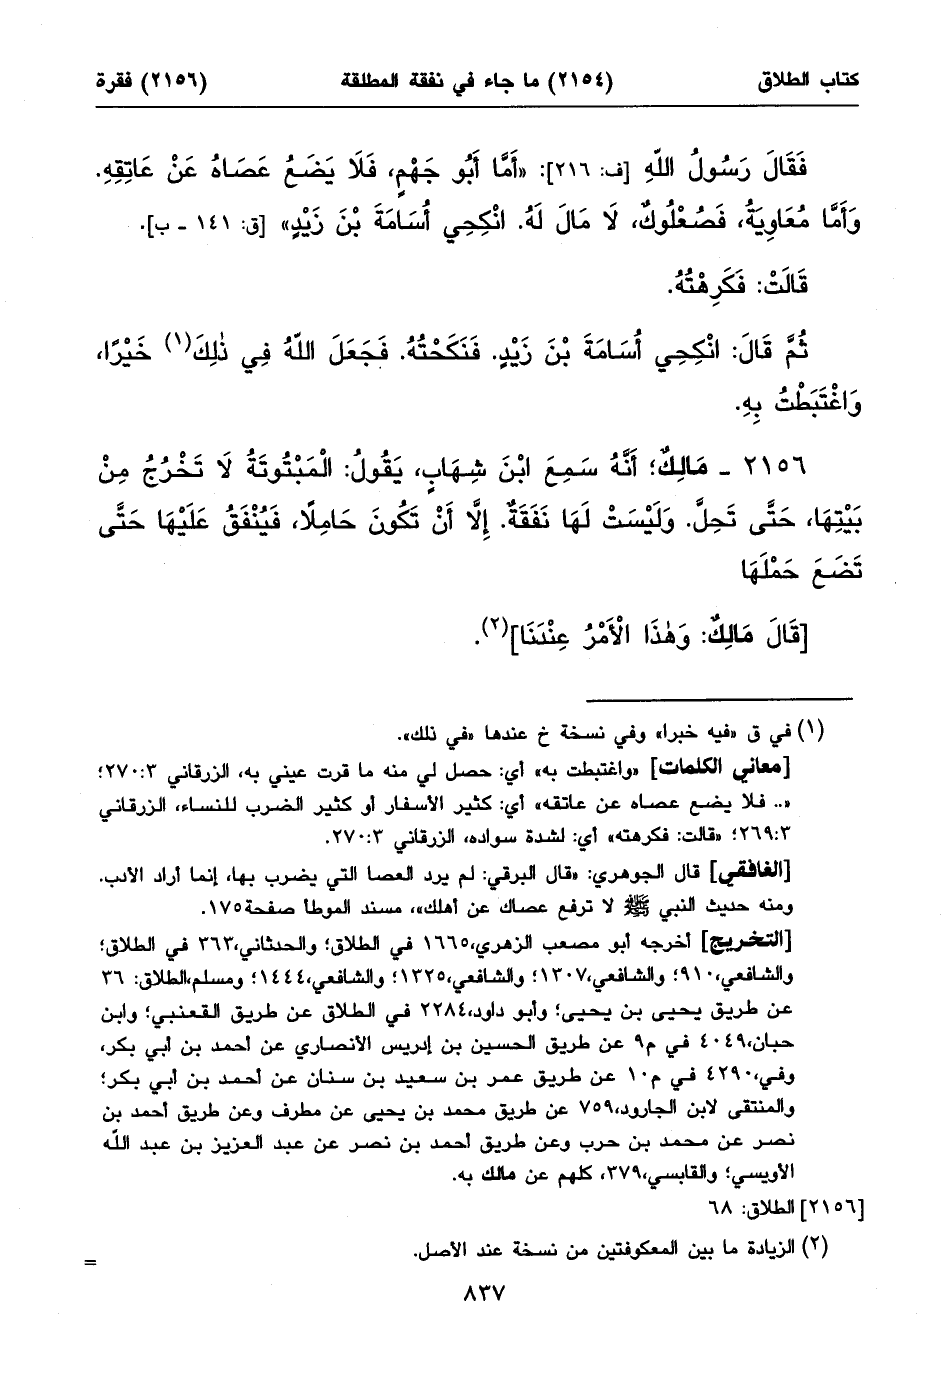 كتاب الطلاق (٢١٥٤) ما جاء في نفقة المطلقة (٢١٥٦) فقرة
فَقَالَ رَسُولُ اللّٰهِ [ف: ٢١٦]: «أَمَّا أَبُو جَهْمٍ، فَلَا يَضَعُ عَصَاهُ عَنْ عَاتِقِهِ.
وَأَمَّا مُعَاوِيَةُ، فَصُعْلُوكٌ، لَا مَالَ لَهُ. انْكِحِي أُسَامَةَ بْنَ زَيْدٍ» [ق: ١٤١ - ب].
قَالَتْ: فَكَرِهْتُهُ.
ثُمَّ قَالَ: انْكِحِي أُسَامَةَ بْنَ زَيْدٍ. فَنَكَحْتُهُ. فَجَعَلَ اللّٰهُ فِي ذٰلِكَ(١) خَيْرًا،
وَاغْتَبَطْتُ بِهِ.
٢١٥٦ - مَالِكٌ؛ أَنَّهُ سَمِعَ ابْنَ شِهَابٍ، يَقُولُ: الْمَبْتُوتَةُ لَا تَخْرُجُ مِنْ
بَيْتِهَا، حَتَّى تَحِلَّ. وَلَيْسَتْ لَهَا نَفَقَةٌ. إِلَّا أَنْ تَكُونَ حَامِلًا، فَيُنْفَقُ عَلَيْهَا حَتَّى
تَضَعَ حَمْلَهَا
[قَالَ مَالِكٌ: وَهٰذَا الْأَمْرُ عِنْدَنَا](٢).
(١) في ق «فيه خبرا» وفي نسخة خ عندها «في ذلك».
[معاني الكلمات] «واغتبطت به» أي: حصل لي منه ما قرت عيني به، الزرقاني ٢٧٠:٣؛
«.. فلا يضع عصاه عن عاتقه» أي: كثير الأسفار أو كثير الضرب للنساء، الزرقاني
٢٦٩:٣؛ «قالت: فكرهته» أي: لشدة سواده، الزرقاني ٢٧٠:٣.
[الغافقي] قال الجوهري: «قال البرقي: لم يرد العصا التي يضرب بها، إنما أراد الأدب.
ومنه حديث النبي ﷺ لا ترفع عصاك عن أهلك»، مسند الموطأ صفحة١٧٥.
[التخريج] أخرجه أبو مصعب الزهري،١٦٦٥ في الطلاق؛ والحدثاني،٣٦٣ في الطلاق؛
والشافعي،٩١٠؛ والشافعي،١٣٠٧؛ والشافعي،١٣٢٥؛ والشافعي،١٤٤٤؛ ومسلم،الطلاق: ٣٦
عن طريق يحيى بن يحيى؛ وأبو داود،٢٢٨٤ في الطلاق عن طريق القعنبي؛ وابن
حبان،٤٠٤٩ في م٩ عن طريق الحسين بن إدريس الأنصاري عن أحمد بن أبي بكر،
وفي،٤٢٩٠ في م١٠ عن طريق عمر بن سعيد بن سنان عن أحمد بن أبي بكر؛
والمنتقى لابن الجارود،٧٥٩ عن طريق محمد بن يحيى عن مطرف وعن طريق أحمد بن
نصر عن محمد بن حرب وعن طريق أحمد بن نصر عن عبد العزيز بن عبد اللّٰه
الأويسي؛ والقابسي،٣٧٩، كلهم عن مالك به.
[٢١٥٦] الطلاق: ٦٨
(٢) الزيادة ما بين المعكوفتين من نسخة عند الأصل.
=
٨٣٧